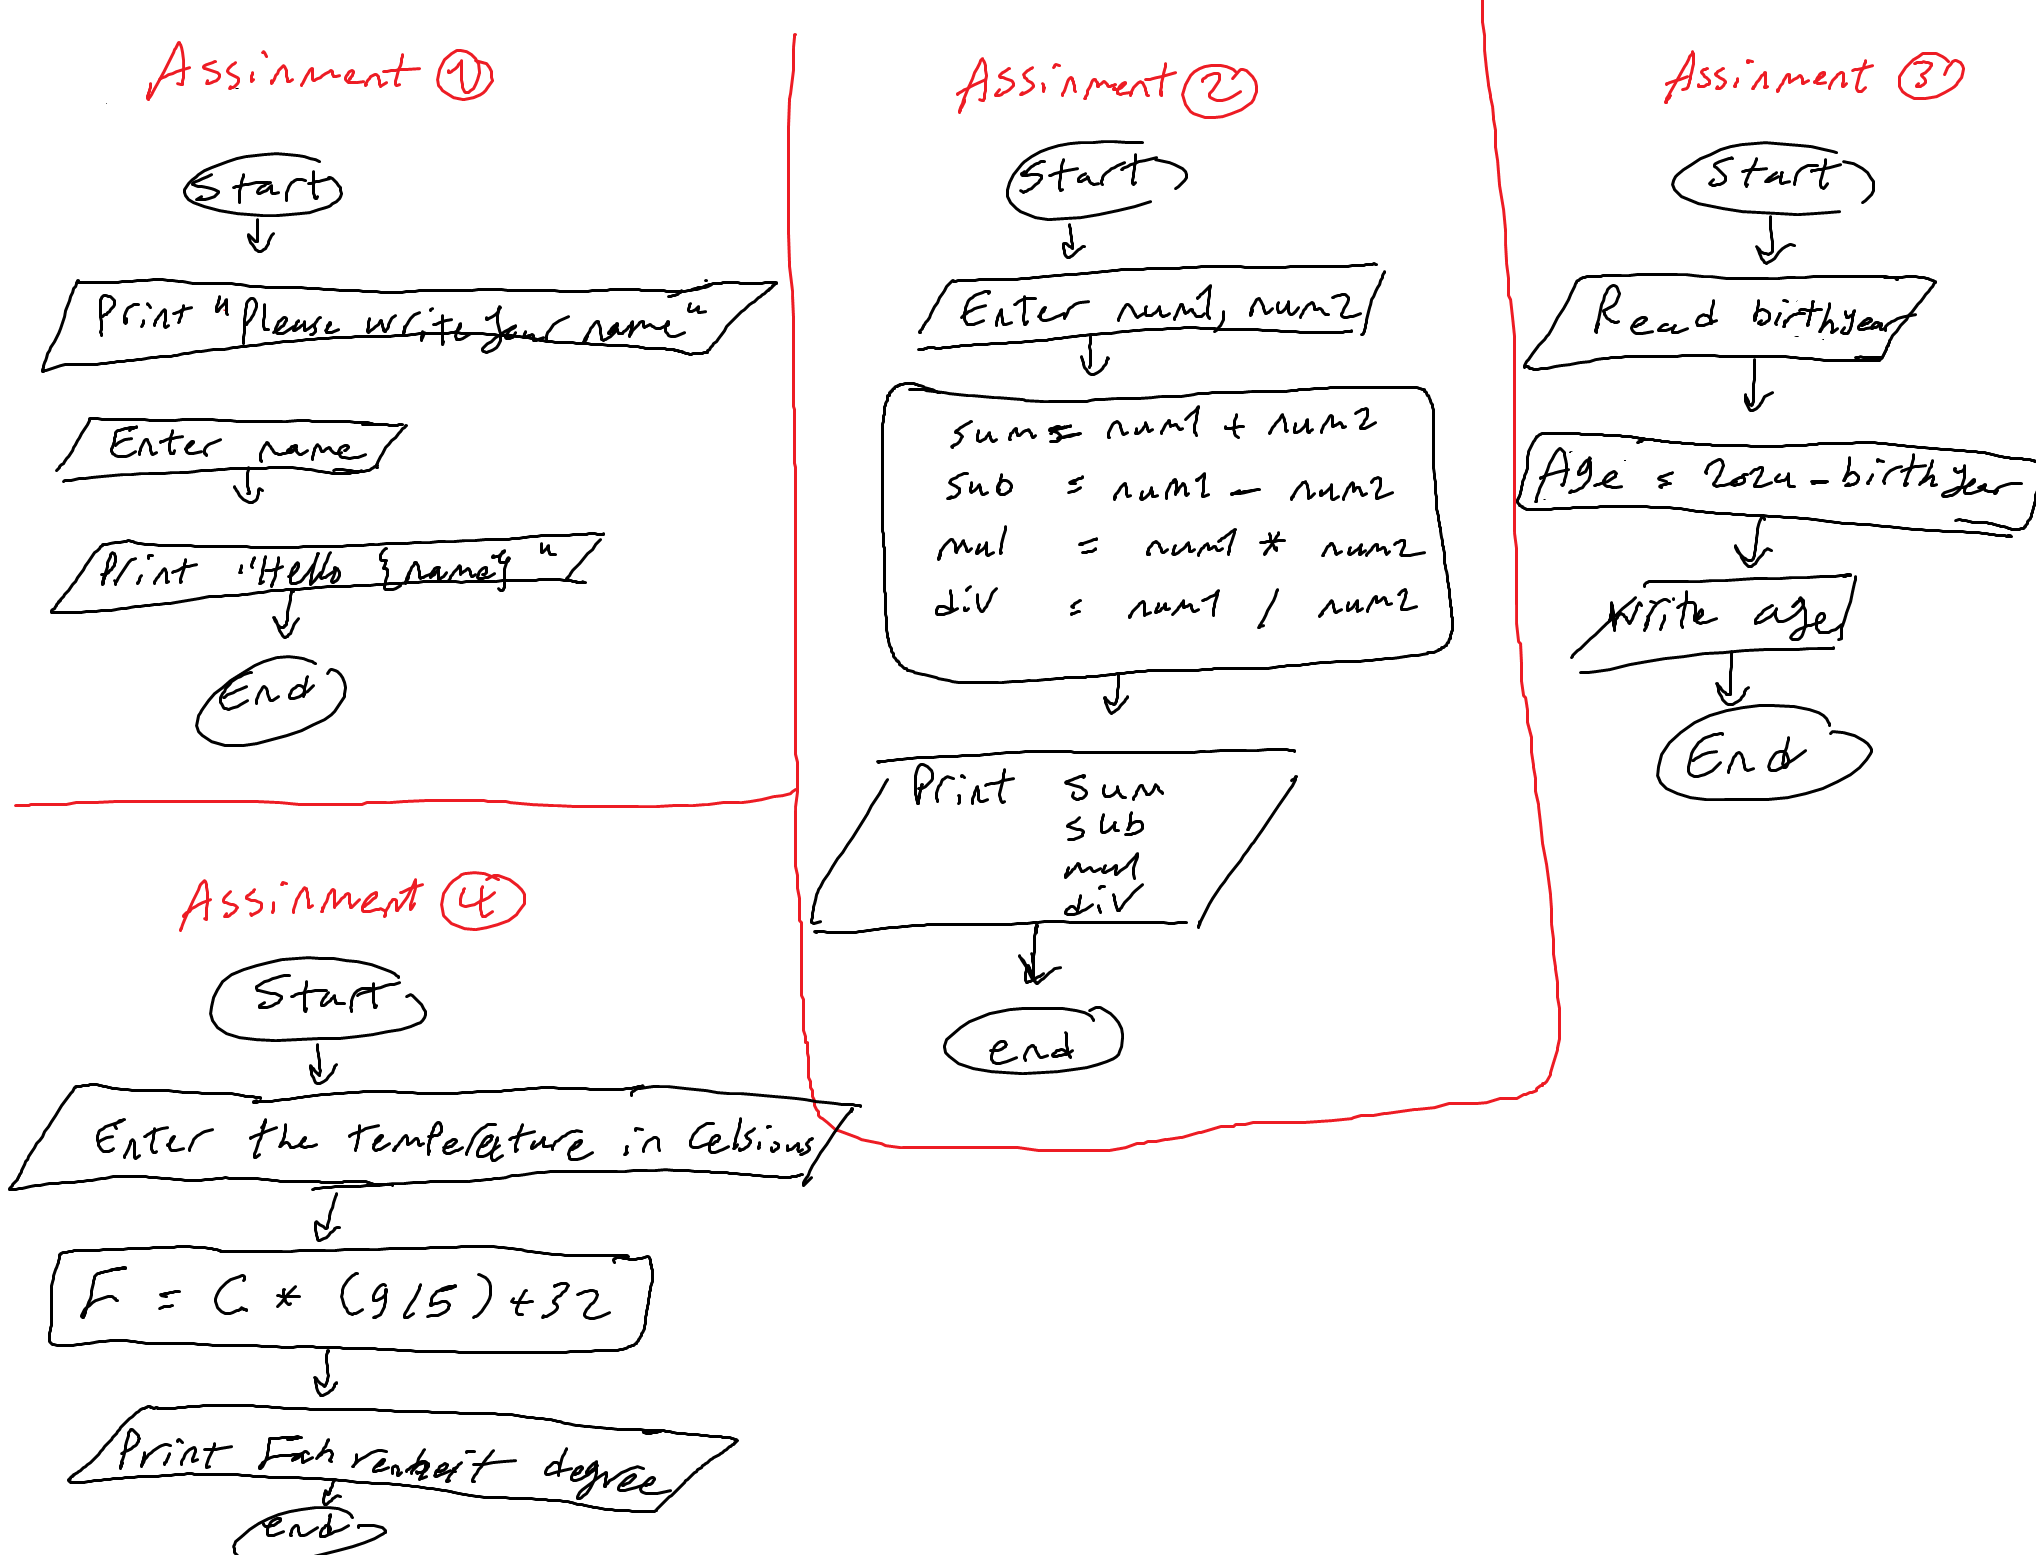 Assinment 1
Start
Print "Please write your name"
Enter name
Print "Hello {name}"
End
Assinment 2
Start
Enter num1, num2
sum = num1 + num2
sub = num1 - num2
mul = num1 * num2
div = num1 / num2
Print sum
sub
mul
div
end
Assinment 3
Start
Read birthyear
Age = 2024 - birthyear
write age
End
Assinment 4
Start
Enter the temperature in Celsious
F = C * (9/5) + 32
Print Fahrenheit degree
end